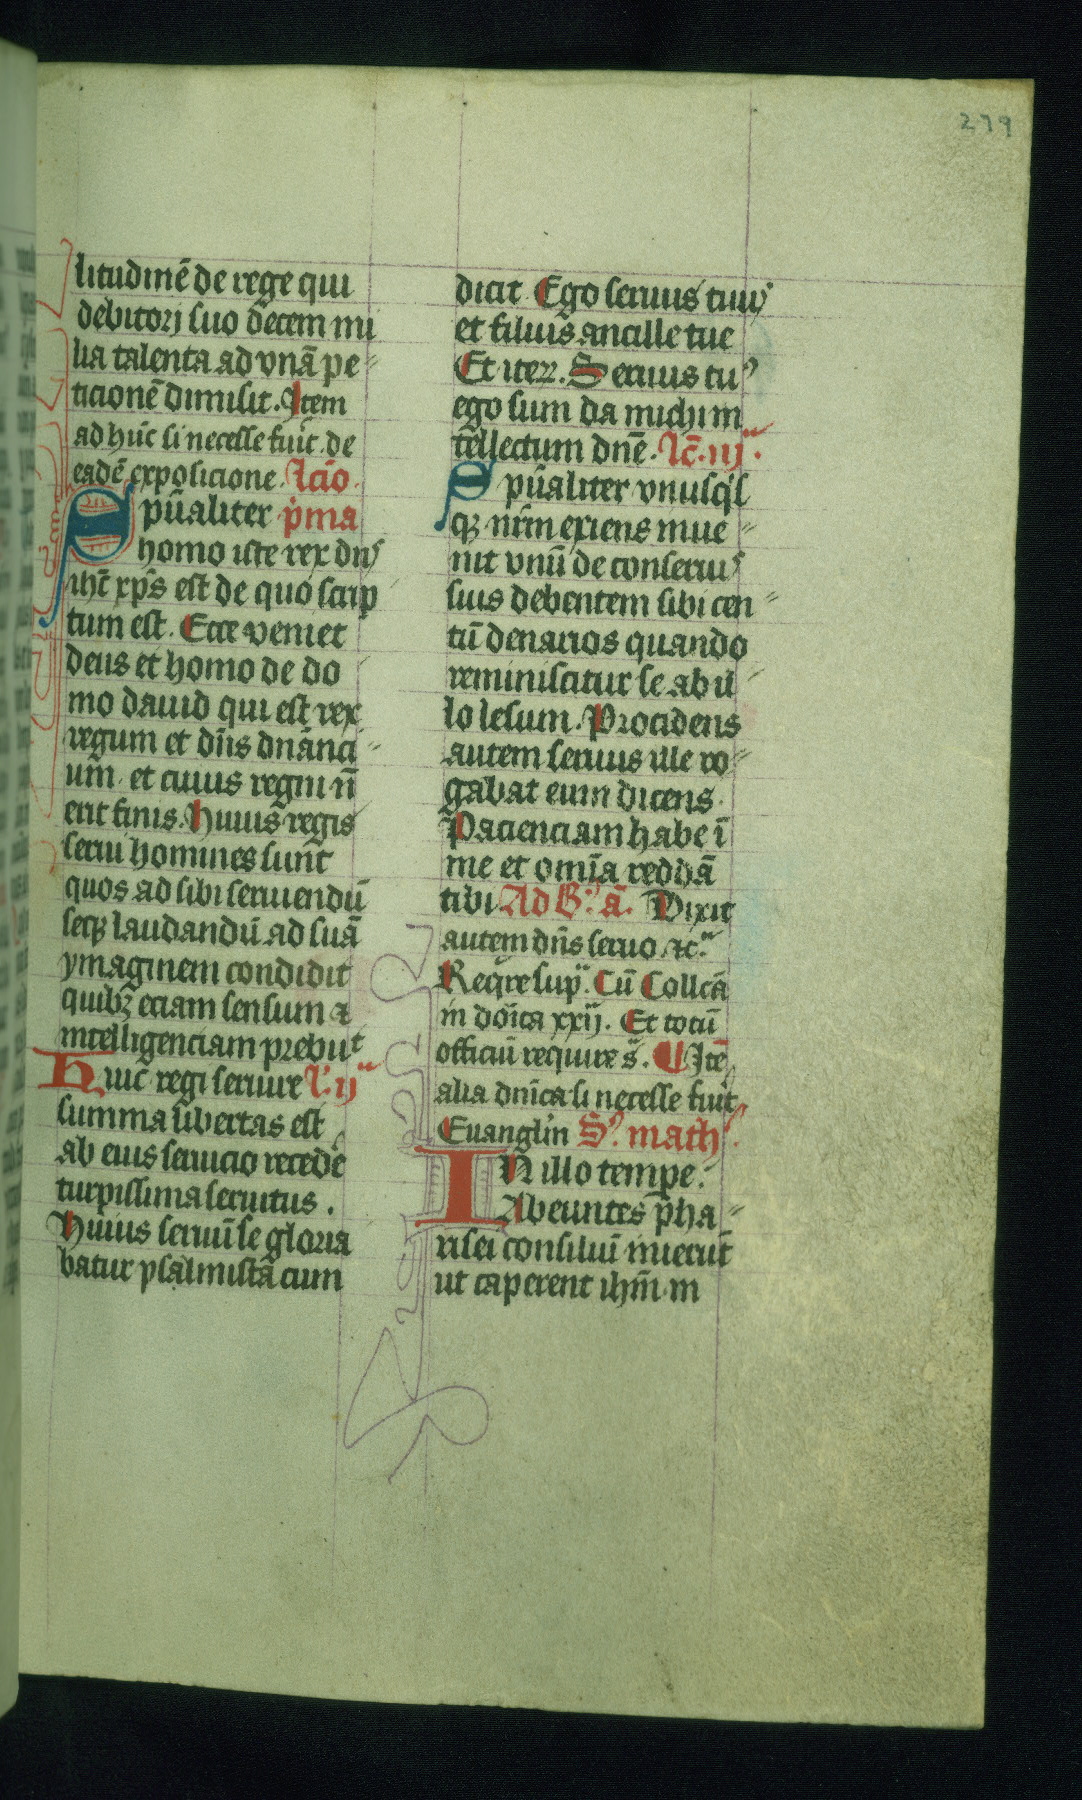 279
litudinē de rege qui
debitori suo decem mi
lia talenta ad vnā pe
ticionē dimisit. Item
ad huc̄ si necesse fuit̄. de
eadē exposicione. Lc̄io.
Spūaliter p̄ma
homo iste rex dn̄s
ihc̄ xp̄s est de quo scrip
tum est. Ecce veniet
deus et homo de do
mo dauid qui est rex
regum et dn̄s dnānci
um. et cuius regni n̄
erit finis. Huius regis
serui homines sunt
quos ad sibi seruiendū
seqꝫ laudandū ad suā
ymaginem condidit
quibꝫ eciam sensum ⁊
intelligenciam prebuit
Huic regi seruire L'. ij
summa libertas est
ab eius seruicio recede
turpissima seruitus.
Huius seruū se gloria
batur psalmistā cum
dicit. Ego seruus tuus
et filius ancille tue
Et iteꝝ. Seruus tuꝰ
ego sum da michi in
tellectum dn̄e. Lc̄. iij.
Spūaliter vnusq's
qꝫ nr̄m exiens inue
nit vnū de conseruis
suis debentem sibi cen
tū denarios quando
reminiscitur se ab il
lo lesum. Procidens
autem seruus ille ro
gabat eum dicens.
Pacienciam habe ī
me et omīa reddā
tibi. Ad B. ā. Dixit
autem dn̄s seruo. ⁊c.
Reqre sup. Cū Collcā
in doīca xxij. Et totū
officiū require s. Itē
alia dnīca si necesse fuit̄
Euangl'in S. math.
In illo tempe.
Abeuntes pha
risei consiliū inierūt
ut caperent ihm̄. in